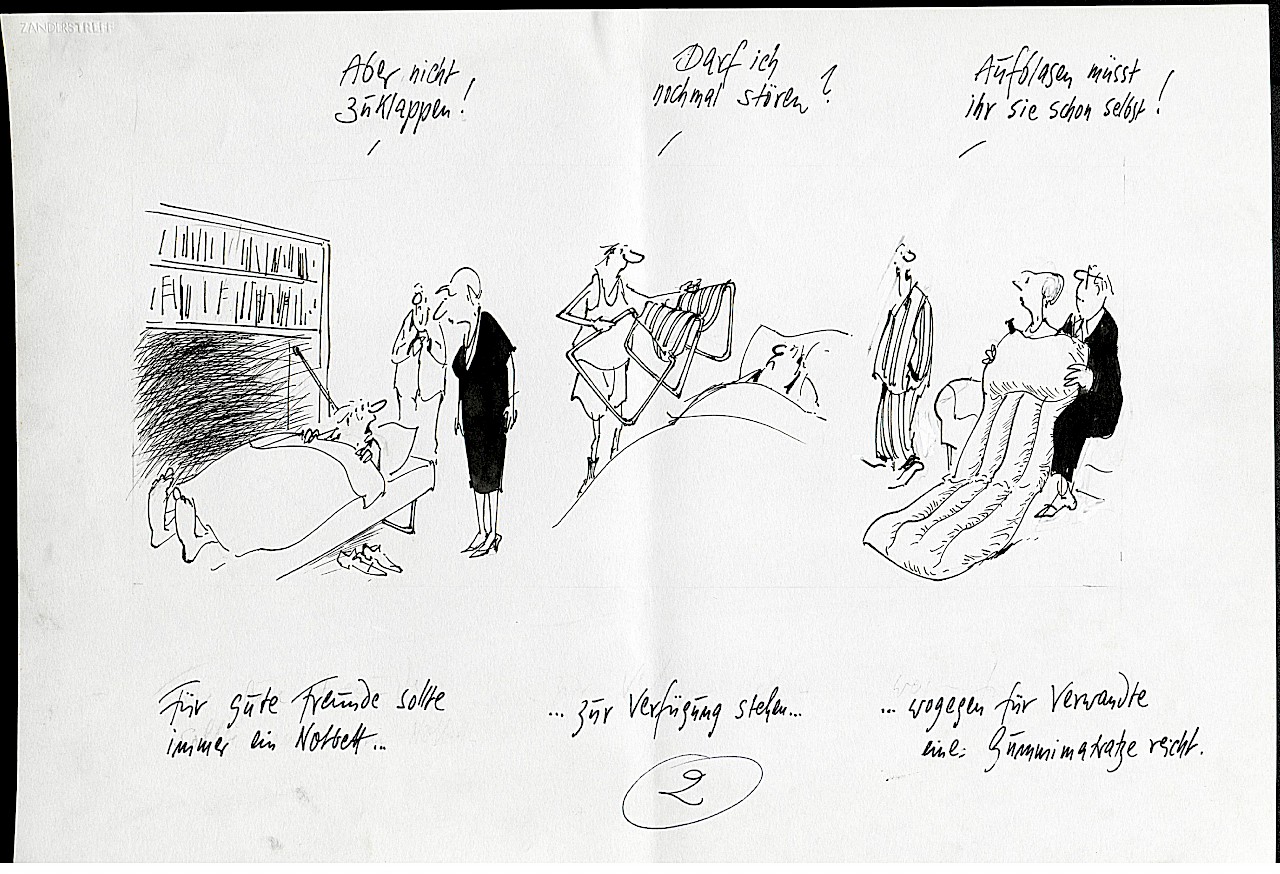 ZANDERSTREIF
Aber nicht
zuklappen!
Darf ich
nochmal stören?
Aufblasen müsst
ihr sie schon selbst!
Für gute Freunde sollte
immer ein Notbett...
... zur Verfügung stehen...
... wogegen für Verwandte
eine: Gummimatratze reicht.
2